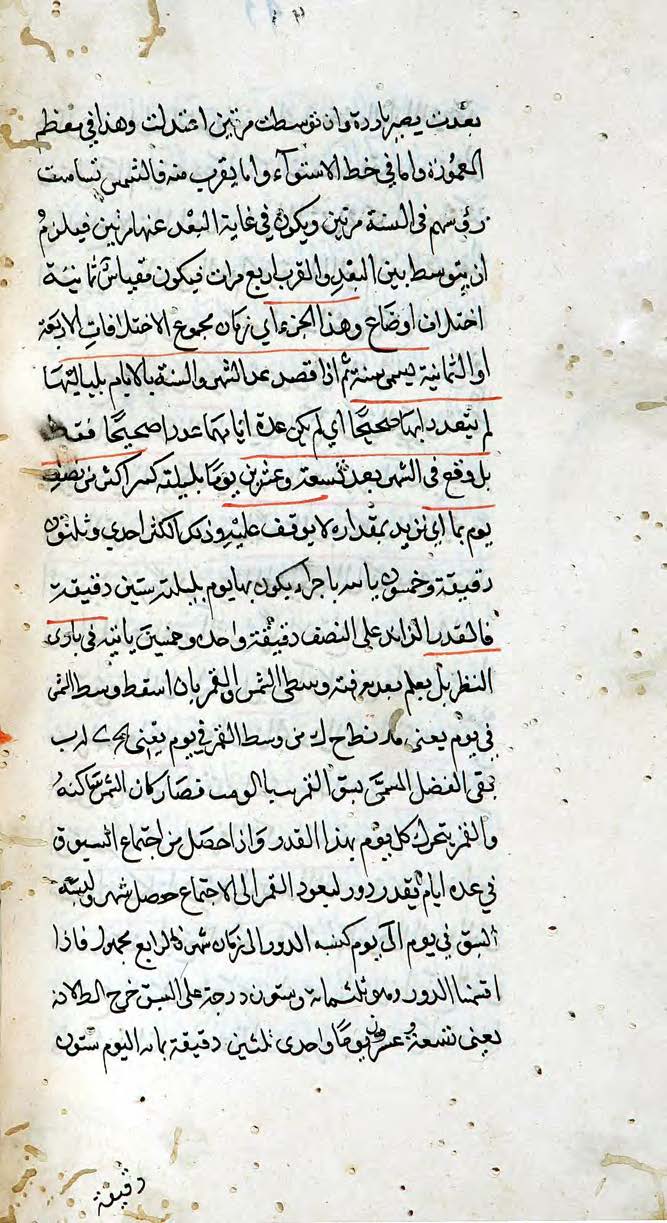 بعدت يصير باردة وان توسطت مرتين اعتدلت وهذا في معظم
المعمورة واما في خط الاستوآء وما يقرب منه فالشمس تسامت
رؤسهم في السنة مرتين ويكون في غاية البعد عنها مرتين فيلزم
ان يتوسط بين البعد والقرب اربع مرات فيكون ثمانية
اختلاف اوضاع وهذا الجزء اي زمان مجموع الاختلافات الاربعة
او الثمانية يسمى سنة ثم اذا قصد عد الشهر والسنة بالايام بلياليها
لم يتعدد ابها صحيحًا اي لم يكن عدة ايامهما عددا صحيحًا فقط
بل وقع في الشهر بعد تسعة وعشرين يومًا بليلته كسر اكثر من نصف
يوم بما اي نزيد بمقدار لا يوقف عليه وذلك الكسر احدي وثلثون
دقيقة وخمسون ثانية باجزاء يكون بها يوم بليلته ستين دقيقة
فالقدر الزائد على النصف دقيقة واحدة وخمسين ثانية في بادى
النظر بل يعلم بعد معرفة وسطى الشمس والقمر بان اسقط وسط الشمس
في يوم يعنى من وسط القمر في يوم يعنى
بقى الفضل المسمى بسبق القمر فصار كان الشمس ساكنة
والقمر يتحرك كل يوم بهذا القدر واذا حصل من اجتماع السبق
في عدة ايام بقدر دور ليعود القمر الى الاجتماع حصل شهر ونسبة
السبق في يوم الى يوم كنسبة الدور الى زمان شهر فالرابع مجهول فاذا
اقسمنا الدور وهو ثلثمائة وستون درجة على السبق خرج
يعنى تسعة وعشرون يومًا واحدى ثلثين دقيقة بان اليوم ستون
دقيقة